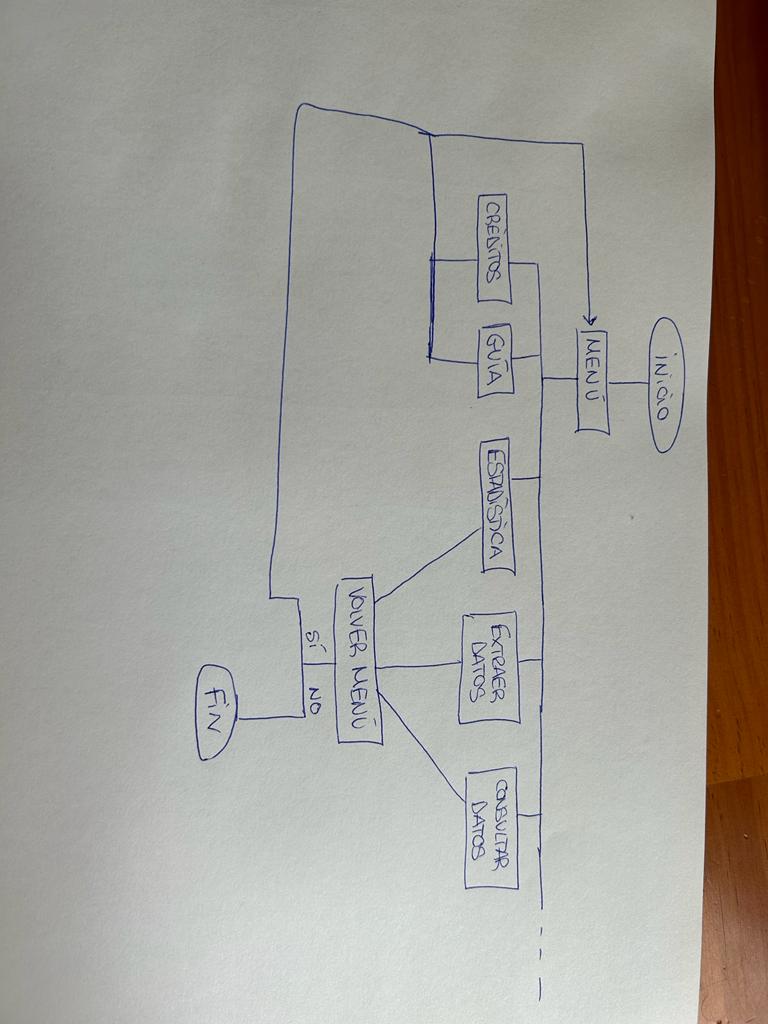 INICIO
MENÚ
CRÉDITOS
GUÍA
ESTADÍSTICA
EXTRAER
DATOS
CONSULTAR
DATOS
VOLVER MENÚ
SÍ
NO
FIN